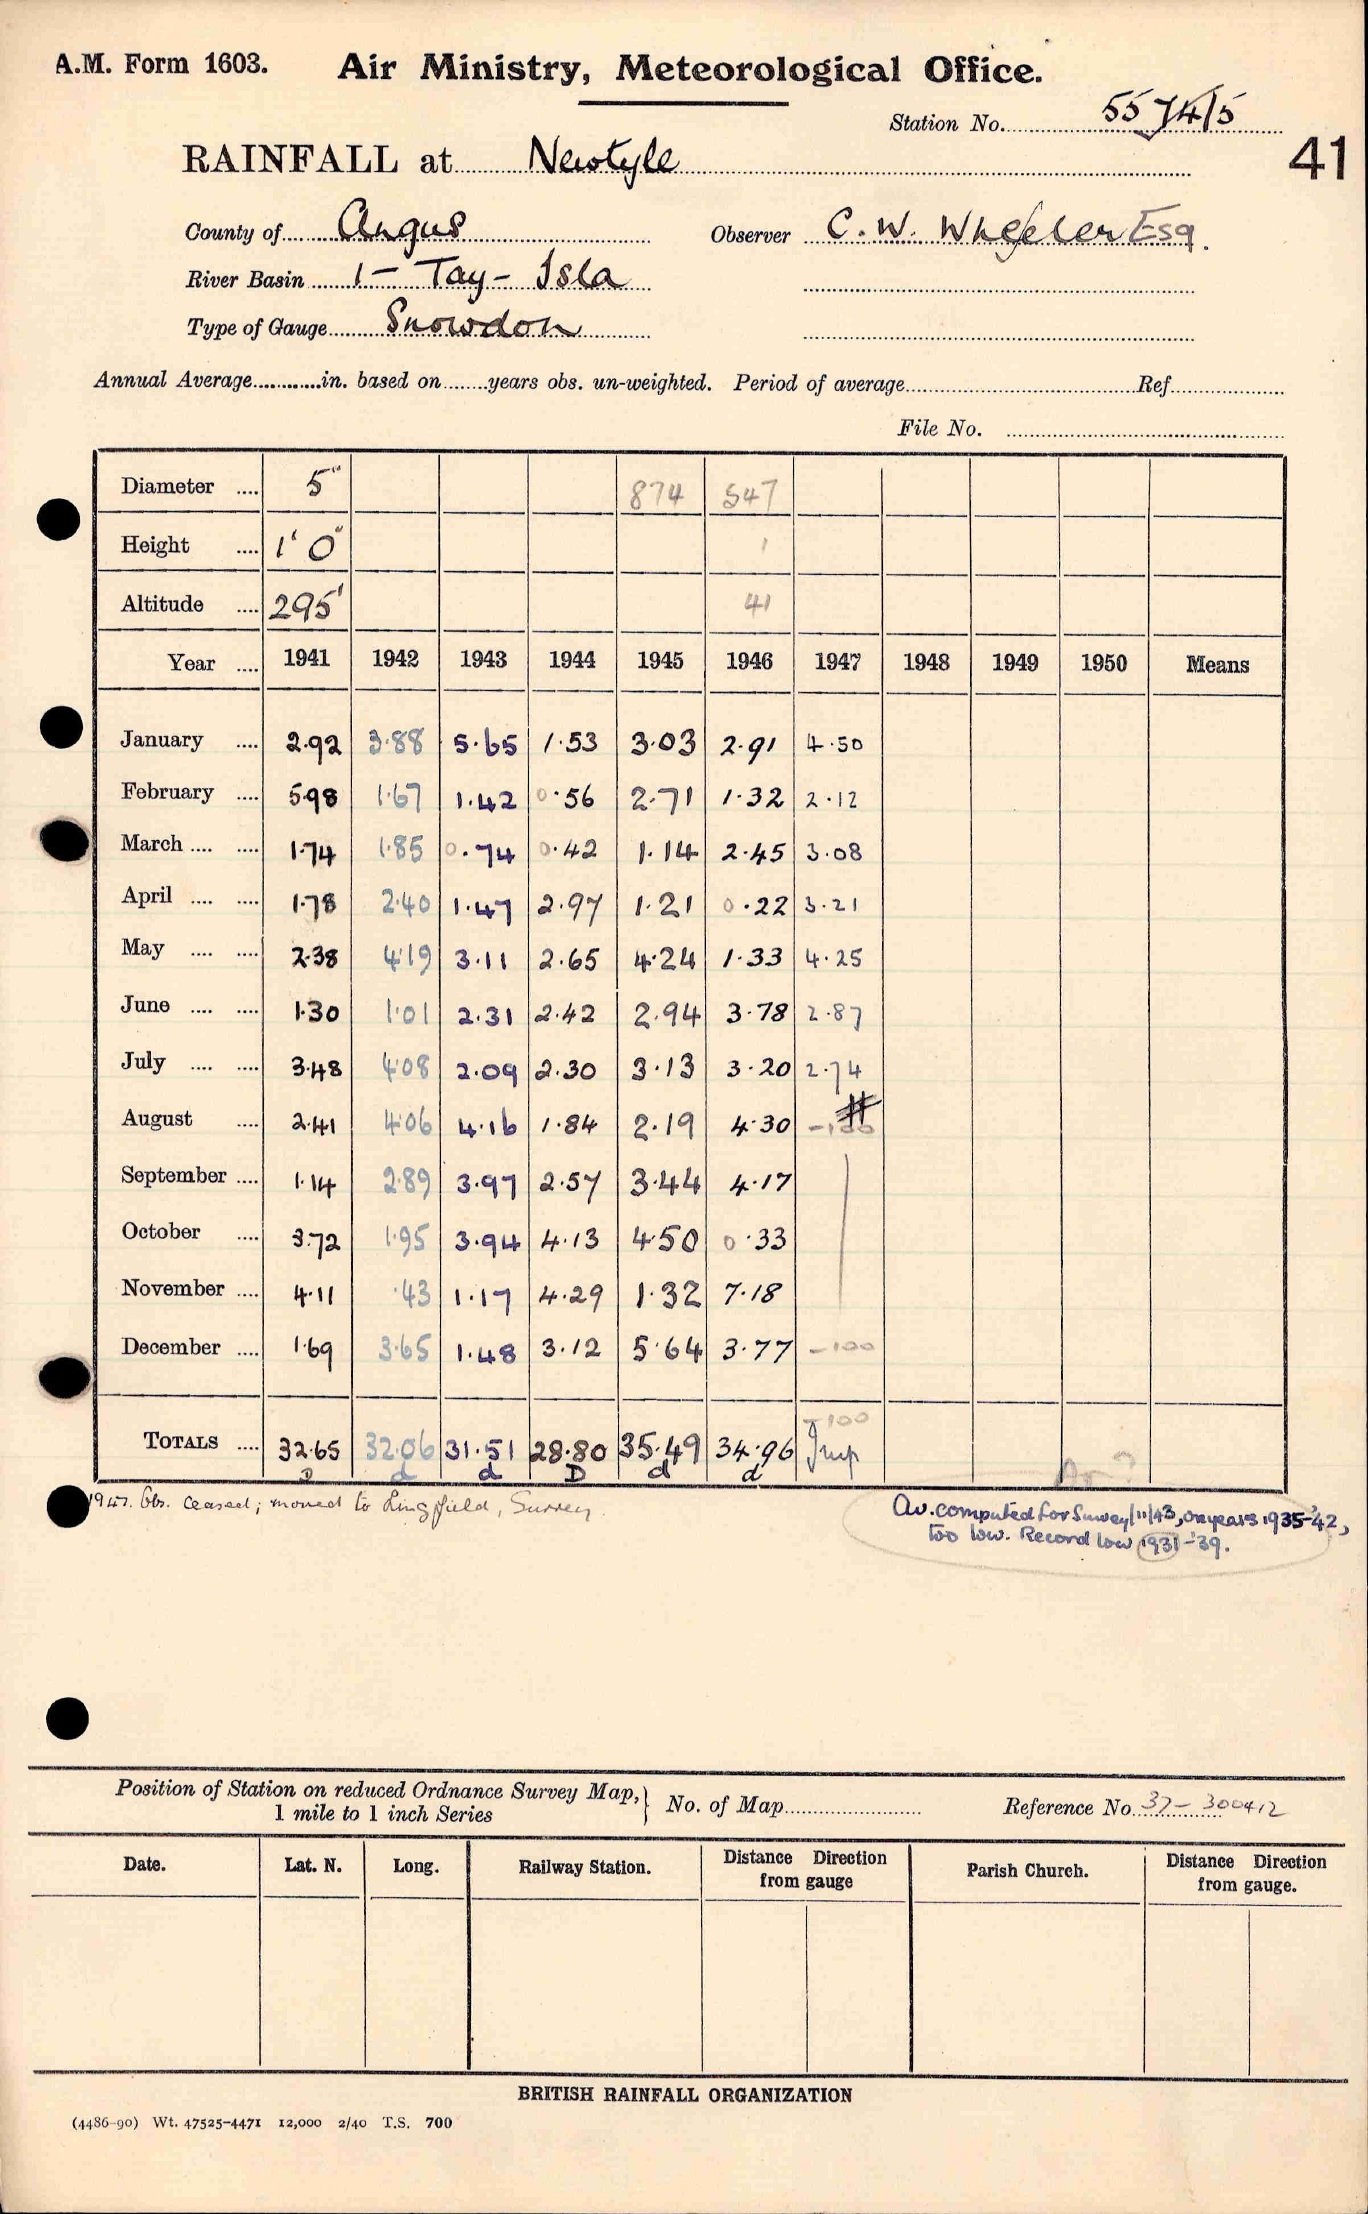 A.M. Form 1603. Air Ministry, Meteorological Office.
Station No. 5574/5
41
RAINFALL at Newtyle
County of Angus Observer C. W. Wheeler Esq.
River Basin 1 - Tay - Isla
Type of Gauge Snowdon
Annual Average in. based on years obs. un-weighted. Period of average Ref.
File No.
Diameter 5" 874 547
Height 1' 0" 1
Altitude 295' 41
Year 1941 1942 1943 1944 1945 1946 1947 1948 1949 1950 Means
January 2.92 3.88 5.65 1.53 3.03 2.91 4.50
February 5.98 1.67 1.42 0.56 2.71 1.32 2.12
March 1.74 1.85 0.74 0.42 1.14 2.45 3.08
April 1.78 2.40 1.47 2.97 1.21 0.22 3.21
May 2.38 4.19 3.11 2.65 4.24 1.33 4.25
June 1.30 1.01 2.31 2.42 2.94 3.78 2.87
July 3.48 4.08 2.09 2.30 3.13 3.20 2.74
August 2.41 4.06 4.16 1.84 2.19 4.30 -100
September 1.14 2.89 3.97 2.57 3.44 4.17
October 3.72 1.95 3.94 4.13 4.50 0.33
November 4.11 .43 1.17 4.29 1.32 7.18
December 1.69 3.65 1.48 3.12 5.64 3.77 -100
-100
TOTALS 32.65 32.06 31.51 28.80 35.49 34.96 Imp
D d d D d d
Av?
1947. Obs. ceased; moved to Lingfield, Surrey.
Av. computed for Survey/11/43, on years 1935-'42,
too low. Record low 1931-'39.
Position of Station on reduced Ordnance Survey Map,
1 mile to 1 inch Series
No. of Map Reference No. 37-300412
Date. Lat. N. Long. Railway Station. Distance Direction from gauge Parish Church. Distance Direction from gauge.
BRITISH RAINFALL ORGANIZATION
(4486-90) Wt. 47525-4471 12,000 2/40 T.S. 700